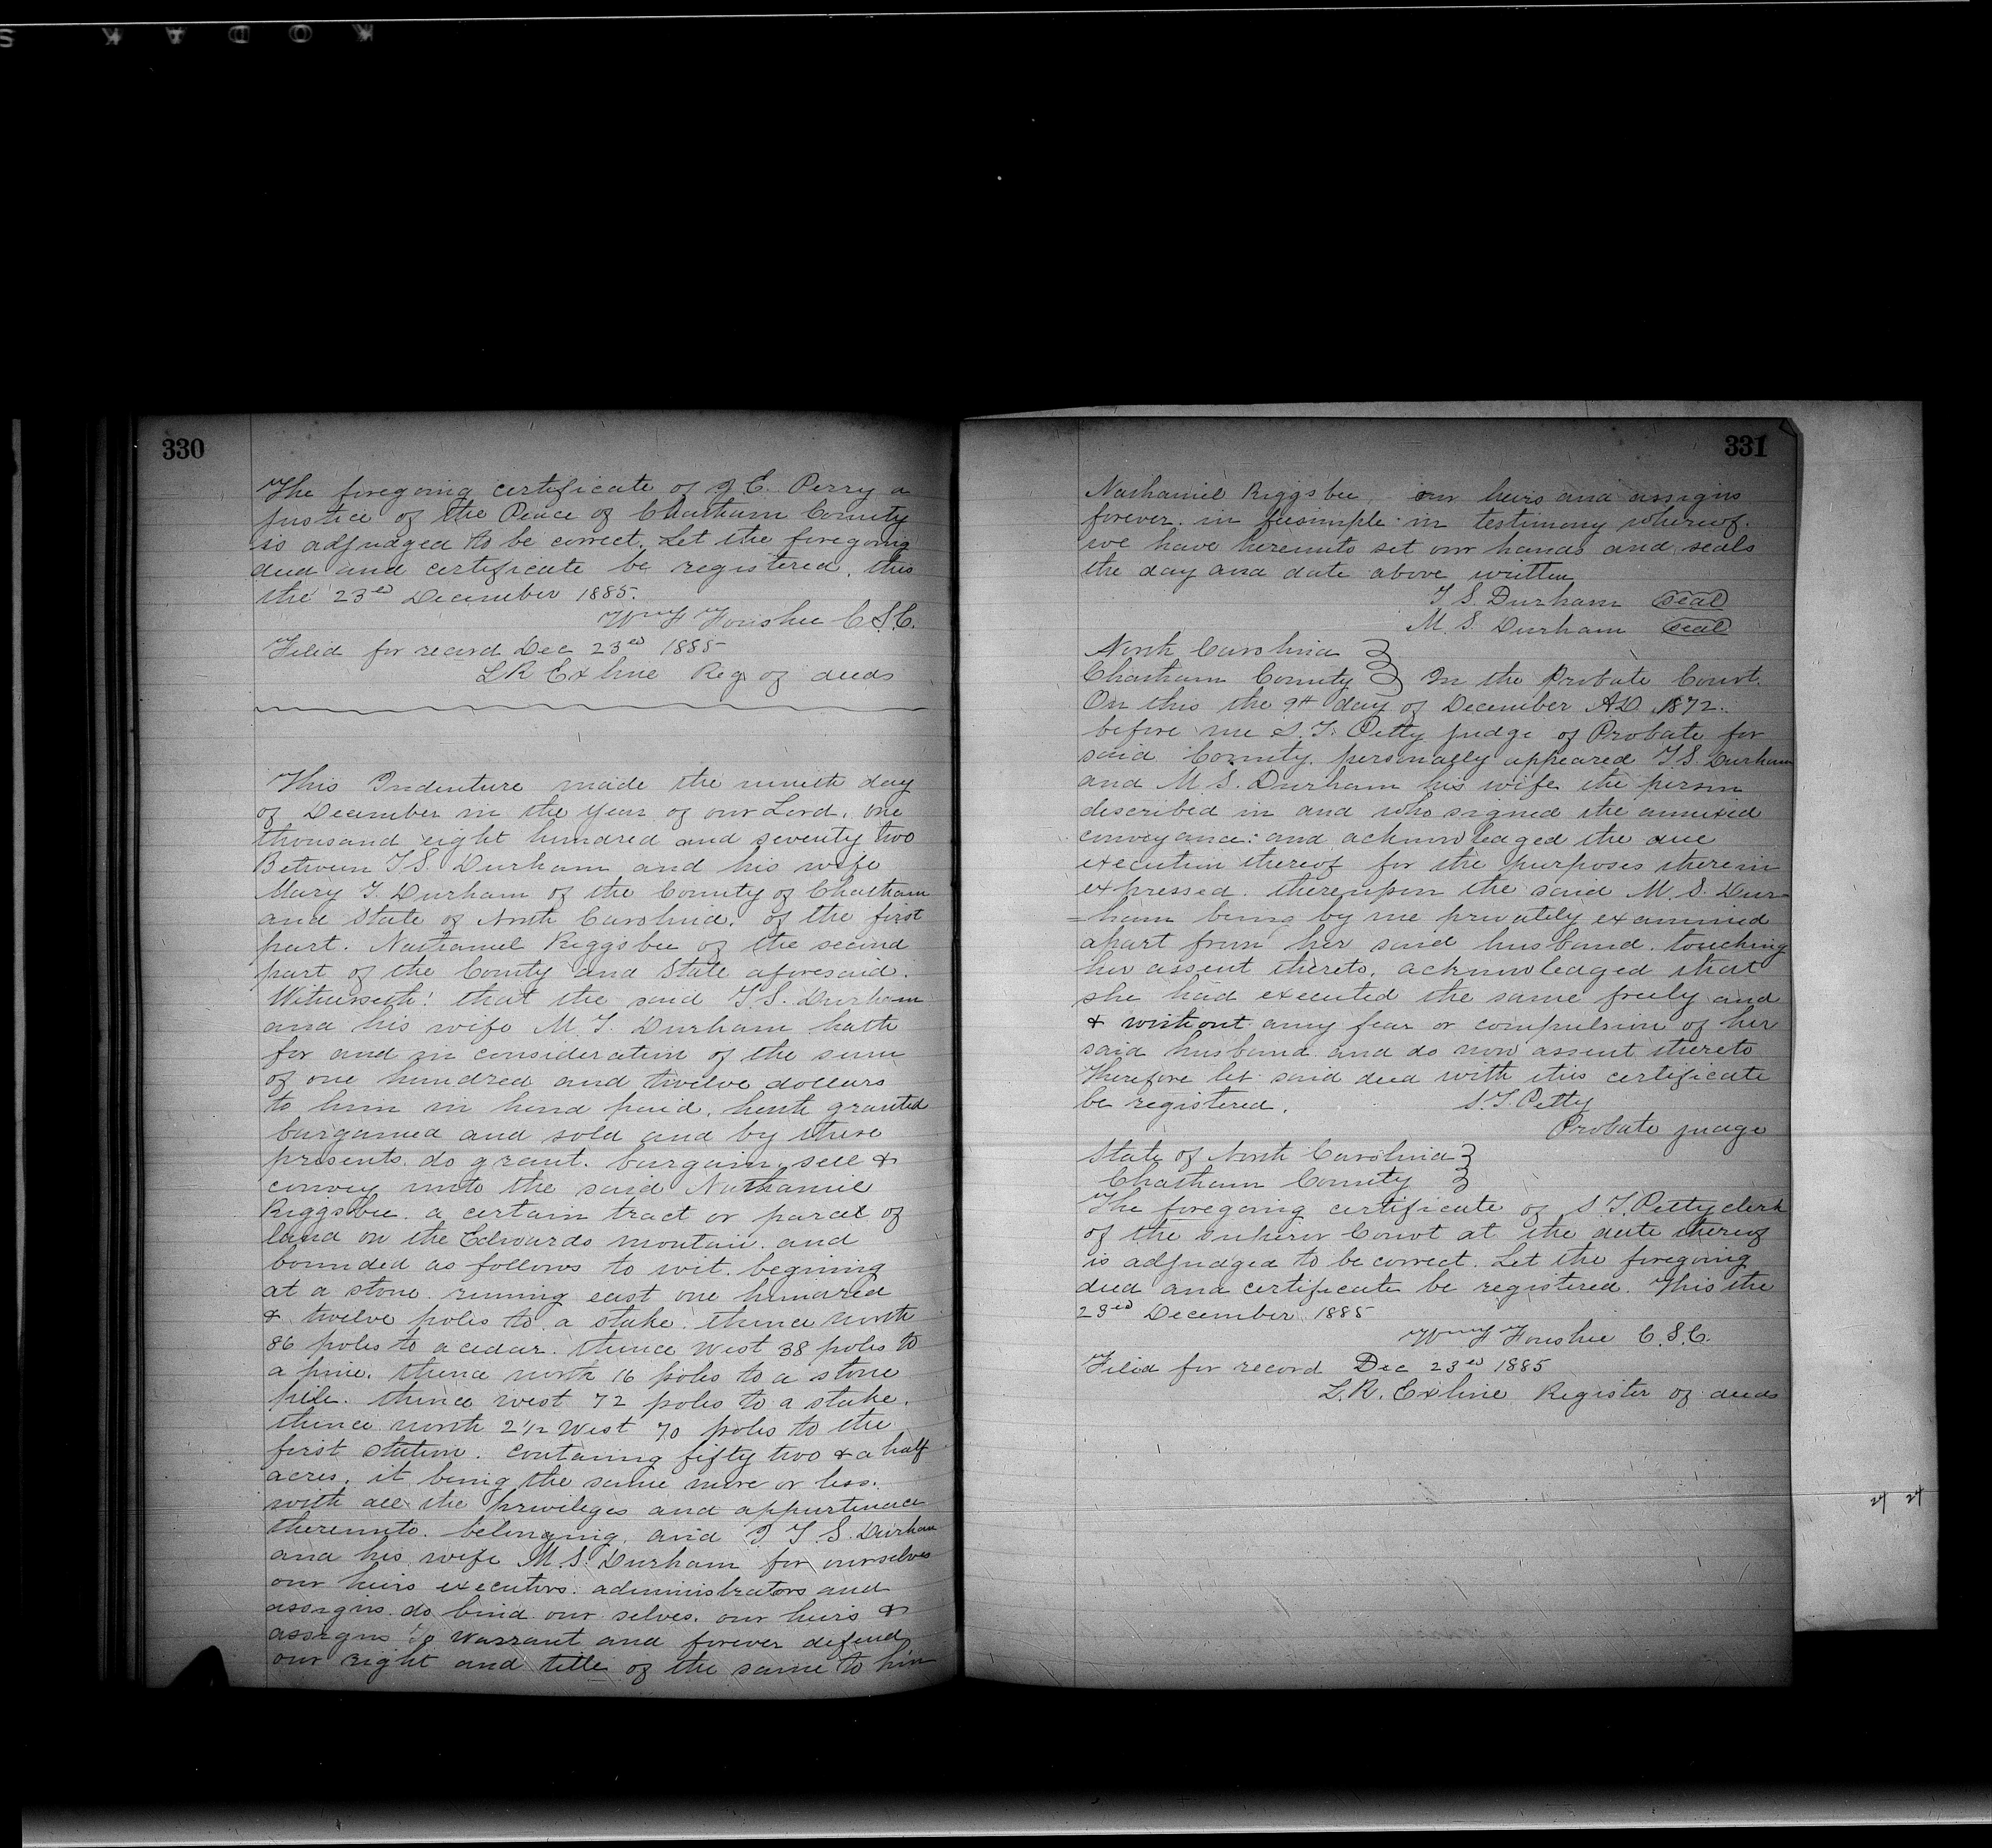 KODAK S
330
The foregoing certificate of J E. Perry a
justice of the Peace of Chatham County
is adjudged to be correct. Let the foregoing
deed and certificate be registered, this
the 23ed December 1885.
Wm F Foushee C.S.C.
Filed for record Dec 23ed 1885
L R Exline Reg of deeds
This Indenture made the nineth day
of December in the year of our Lord, one
thousand eight hundred and seventy two
Between T S. Durham and his wife
Mary T. Durham of the County of Chatham
and State of North Carolina. of the first
part. Nathaniel Riggsbee of the second
part of the County and State aforesaid.
Witnesseth: that the said T S. Durham
and his wife M T. Durham hath
for and in consideration of the sum
of one hundred and twelve dollars
to him in hand paid, hath granted
bargained and sold and by these
presents. do grant. bargain, sell &
convey unto the said Nathaniel
Riggsbee. a certain tract or parcel of
land on the Edwards montain. and
bounded as follows to wit. begining
at a stone. runing east one hundred
& twelve poles to a stake. thence north
86 poles to a cedar. thence West 38 poles to
a pine. thence north 16 poles to a stone
pile. thence west 72 poles to a stake.
thence north 2 1/2 West 70 poles to the
first station. containg fifty two & a half
acres. it being the same more or less.
with all the privileges and appurtenace
thereunto. belonging. and I T S. Durham
and his wife M. S. Durham for ourselves
our heirs executors. administrators and
assigns do bind our selves. our heirs &
assigns To Warrant and forever defend
our right and title of the same to him
331
Nathaniel Riggsbee, our heirs and assigns
forever. in feesimple in testimony whereof.
we have hereunto set our hands and seals
the day and date above written
T S. Durham seal
M. S. Durham seal
North Carolina
Chatham County In the Probate Court.
On this the 9th day of December AD 1872.
before me S. T. Petty judge of Probate for
said County. personally appeared T S. Durham
and M. S. Durham his wife the person
described in and who signed the annexed
conveyance: and acknowledged the due
execution thereof for the purposes therein
expressed. thereupon the said M. S. Dur-
=ham being by me privately examined
apart from her said husband. touching
her assent thereto, acknowledged that
she had executed the same freely and
& without any fear or compulsion of her
said husband and do now assent thereto
Therefore let said deed with this certificate
be registered. S. T. Petty
Probate judge
State of North Carolina
Chatham County
The foregoing certificate of S T. Petty clerk
of the superior Court at the date thereof
is adjudged to be correct. Let the foregoing
deed and certificate be registered. This the
23ed December 1885
Wm F Foushee C.S.C.
Filed for record Dec 23ed 1885
L. R. Exline Register of deeds